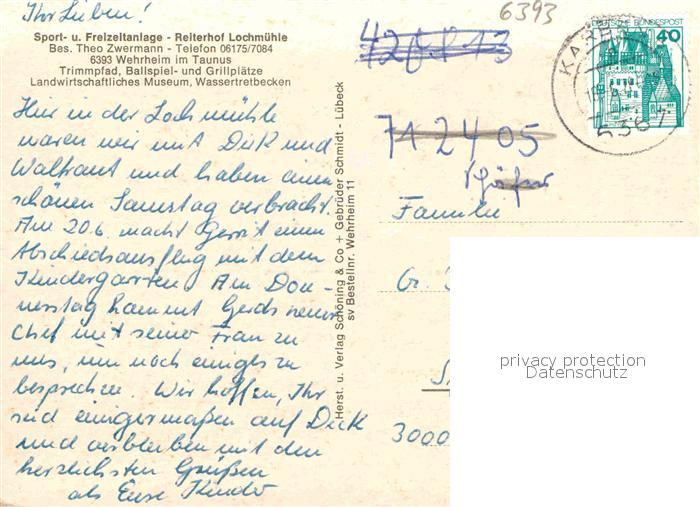 Ihr Lieben!
6393
Sport- u. Freizeitanlage - Reiterhof Lochmühle
Bes. Theo Zwermann - Telefon 06175/7084
6393 Wehrheim im Taunus
Trimmpfad, Ballspiel- und Grillplätze
Landwirtschaftliches Museum, Wassertretbecken
Hier in der Lochmühle
waren wir mit Dirk und
Waltraut und haben einen
schönen Samstag verbracht.
Am 20.6. macht Gerrit einen
Abschiedsausflug mit dem
Kindergarten. Am Don-
nerstag kommt Gerds neuer
Chef mit seiner Frau zu
uns, um noch einiges zu
besprechen. Wir hoffen, Ihr
seid einigermaßen auf Deck
und verbleiben mit den
herzlichsten Grüßen
als Eure Kinder
Herst. u. Verlag Schöning & Co + Gebrüder Schmidt - Lübeck
sv Bestellnr. Wehrheim 11
DEUTSCHE BUNDESPOST
40
KARBEN
6367
71 24 05
Familie
3000
privacy protection
Datenschutz